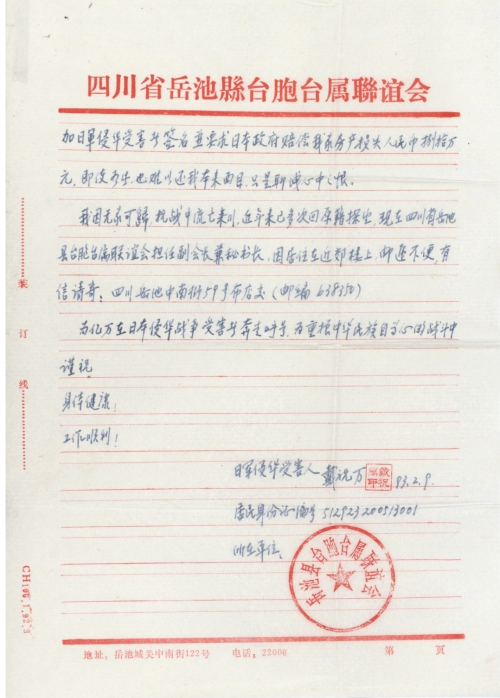 四川省岳池縣台胞台属聯谊会
加日軍侵华受害者签名並要求日本政府赔偿我家房产损失人民币捌拾万
元，即使如此也难以还我本来面目，只是聊消心中之恨。
我因无家可歸，抗战中流亡来川，近年来已多次回原籍探望，现在四川省岳池
县台胞台属联谊会担任副会长兼秘书长，因居住在近郊楼上，邮递不便，有
信请寄：四川岳池中南街59号布店去（邮编638350）
为亿万在日本侵华战争受害者奔走呼号，为重振中华民族自尊心的战斗中
谨祝
身体健康！
工作顺利！
日軍侵华受害人 戴祝万 93.2.9.
居民身份证编号 512923200513001
所在单位：
岳池县台胞台属联谊会
装
订
线
地址：岳池城关中南街122号 电话：22006 第 页